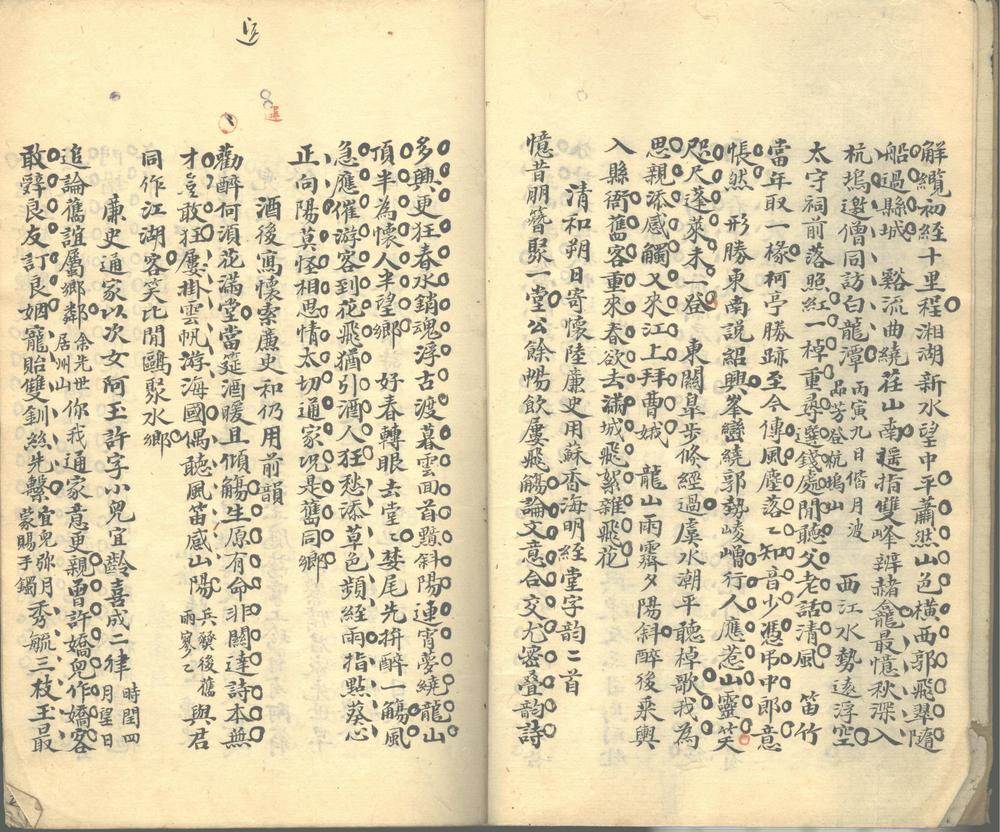 解纜初経十里程湘湖新水望中平蕭然山邑橫西郭飛翠隨
船過縣城　谿流曲繞茌山南遥指雙峰辨赭龕最憶秋深入
杭塢邀僧同訪白龍潭丙寅九日偕月波品芳登杭塢山　西江水勢遠浮空
太守祠前落照紅一棹重尋選錢處閒聽父老話清風　笛竹
當年取一椽柯亭勝跡至今傳風塵落〻知音少憑弔中郎意
悵然　形勝東南説紹興峯巒繞郭勢崚嶒行人應惹山靈笑
咫尺蓬萊未一登　東關皐步倏經過虞水潮平聽棹歌我為
思親添感觸又來江上拜曹娥　龍山雨霽夕陽斜醉後乗興
入縣衙舊客重來春欲去滿城飛絮雜飛花
清和朔日寄懷陸廉史用蘇香海明経堂字韵二首
憶昔朋簪聚一堂公餘暢飲屢飛觴論文意合交尤密叠韵詩
多興更狂春水銷魂浮古渡暮雲面首黯斜陽連宵夢繞龍山
頂半為懷人半望鄉　好春轉眼去堂〻婪尾先拚醉一觴風
急應催游客到花飛猶引酒人狂愁添草色頻経雨指點葵心
正向陽莫怪相思情太切通家况是舊同鄉
酒後寓懷索廉史和仍用前韻
勸醉何湏花滿堂當筵酒暖且傾觴生原有命非關達詩本無
才豈敢狂屢掛雲帆游海國偶聽風笛感山陽兵燹後舊雨寥〻與君
同作江湖客笑比閒鷗聚水鄉
廉史通家以次女阿玉許字小兒宜齡喜成二律時閏四月望日
追論舊誼屬鄉鄰余先世居州山你我通家意更親曾許嬌兒作嬌客
敢辭良友訂良姻寵貽雙釧絲先繫宜兒弥月蒙賜手鐲秀毓三枝玉最